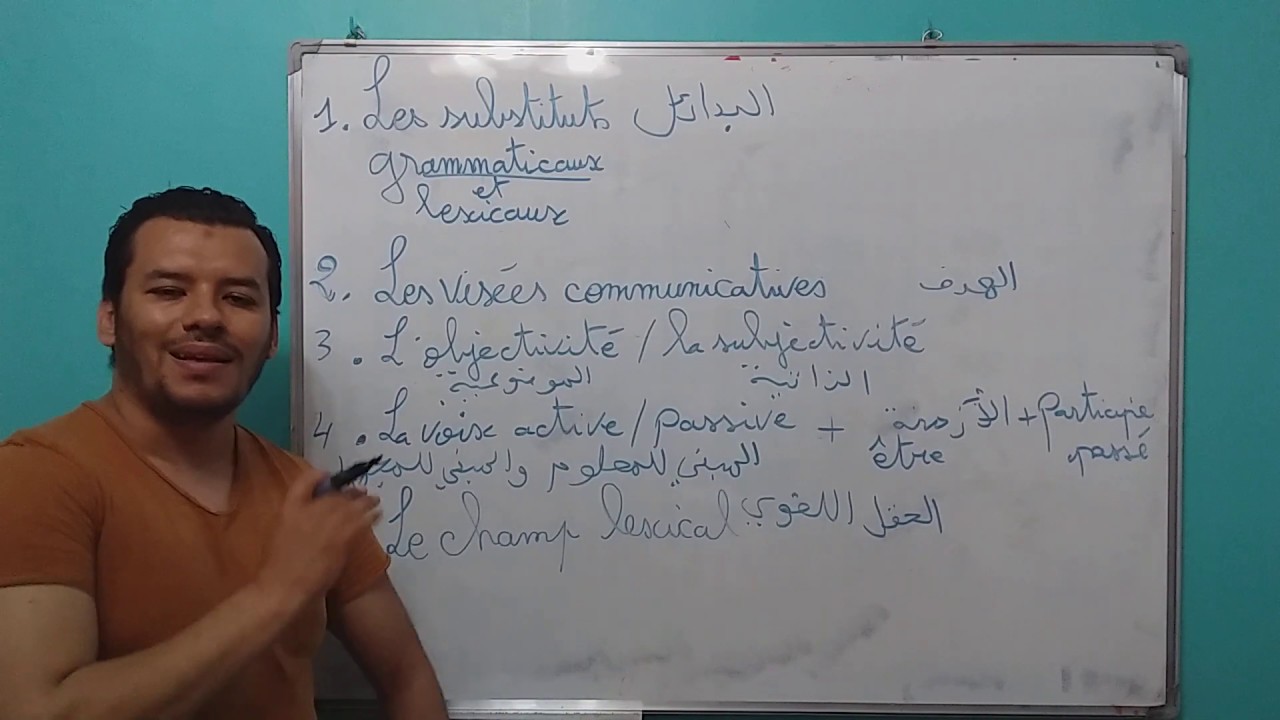 1. Les substituts البدائل
grammaticaux
et
lexicaux
2. Les visées communicatives الهدف
3. L'objectivité / la subjectivité
الموضوعية الذاتية
4. La voix active / passive + الأزمنة + Participe
المبني للمعلوم والمبني être passé
Le champ lexical الحقل اللغوي